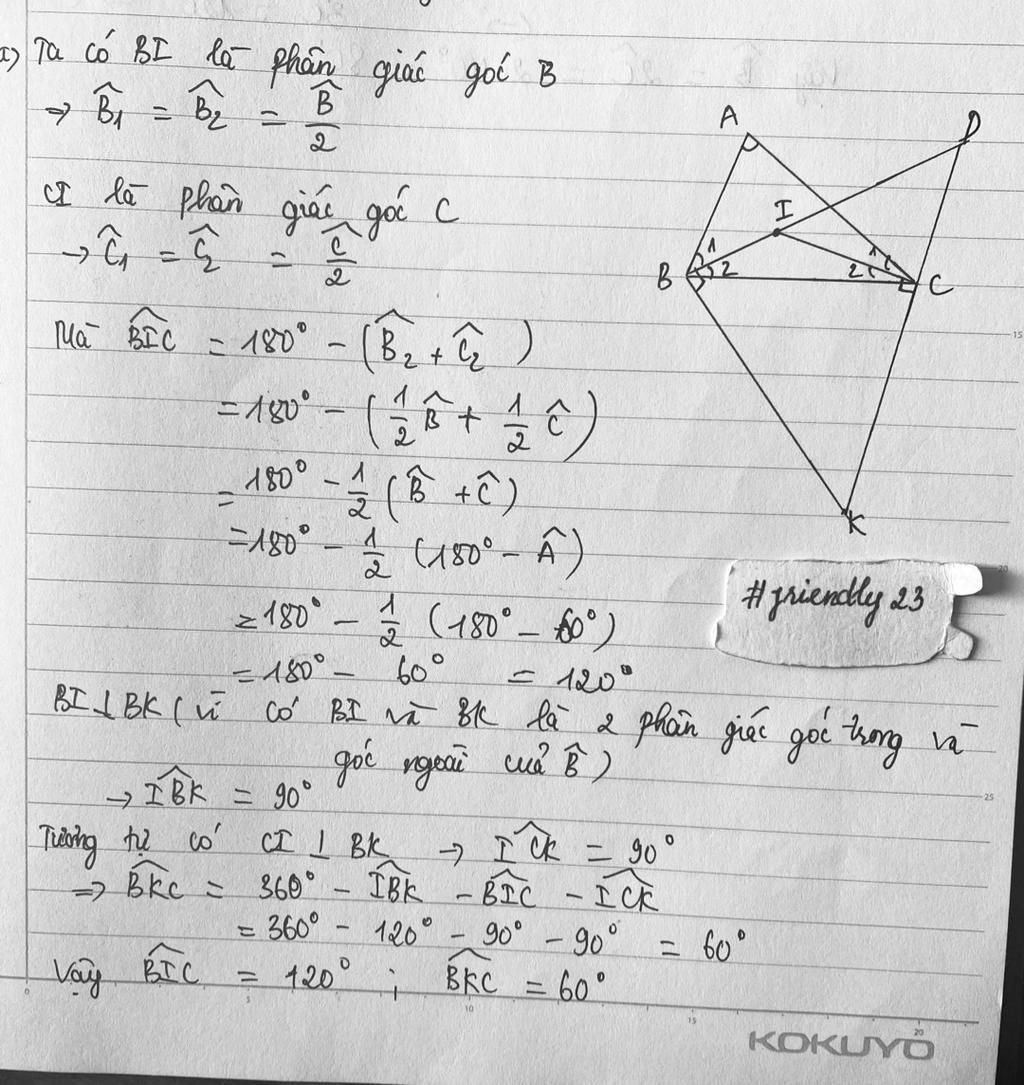 a) Ta có BI là phân giác góc B
⇒ B̂₁ = B̂₂ = B̂/2
CI là phân giác góc C
→ Ĉ₁ = Ĉ₂ = Ĉ/2
Mà BIC^ = 180° - (B̂₂ + Ĉ₂)
= 180° - (1/2 B̂ + 1/2 Ĉ)
= 180° - 1/2 (B̂ + Ĉ)
= 180° - 1/2 (180° - Â)
= 180° - 1/2 (180° - 60°)
= 180° - 60° = 120°
BI ⊥ BK (vì có BI và BK là 2 phân giác góc trong và
góc ngoài của B̂)
→ IBK^ = 90°
Tương tự có CI ⊥ BK → ICK^ = 90°
⇒ BKC^ = 360° - IBK^ - BIC^ - ICK^
= 360° - 120° - 90° - 90° = 60°
Vậy BIC^ = 120° ; BKC^ = 60°
A
D
I
B 1 2
1 2 C
K
#friendly 23
15
20
25
0 5 10 15 20
KOKUYO